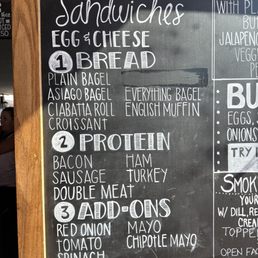 Sandwiches
EGG & CHEESE
1 BREAD
PLAIN BAGEL
ASIAGO BAGEL EVERYTHING BAGEL
CIABATTA ROLL ENGLISH MUFFIN
CROISSANT
2 PROTEIN
BACON HAM
SAUSAGE TURKEY
DOUBLE MEAT
3 ADD-ONS
RED ONION MAYO
TOMATO CHIPOTLE MAYO
SPINACH
WITH PL
BU
JALAPENO
VEGG
BU
EGGS,
ONIONS
TRY I
SMOK
YOUR
W/ DILL, RE
CREA
TOPPE
OPEN FAC